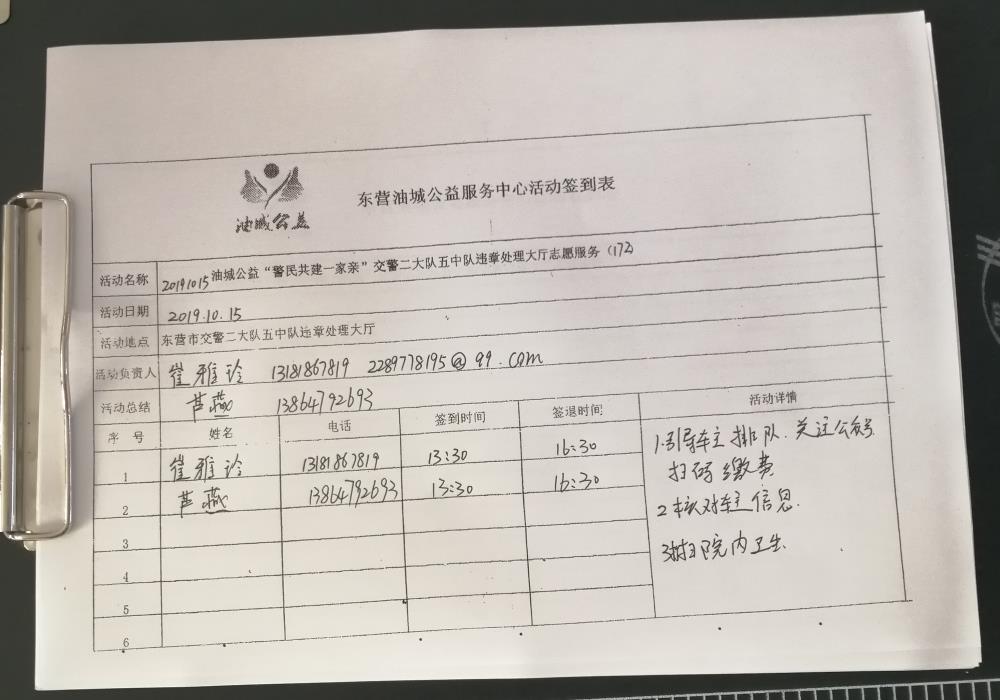 油城公益
东营油城公益服务中心活动签到表
活动名称 20191015油城公益“警民共建一家亲”交警二大队五中队违章处理大厅志愿服务（172）
活动日期 2019.10.15
活动地点 东营市交警二大队五中队违章处理大厅
活动负责人 崔雅玲 13181867819 2289778195@qq.com
活动总结 芦燕 13864792693
序号 姓名 电话 签到时间 签退时间 活动详情
1 崔雅玲 13181867819 13:30 16:30
2 芦燕 13864792693 13:30 16:30
3
4
5
6
1.引导车主排队.关注公众号.
扫码缴费
2核对车主信息.
3打扫院内卫生.